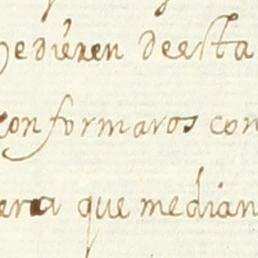 pediéren de esta
conformaros con
era que median